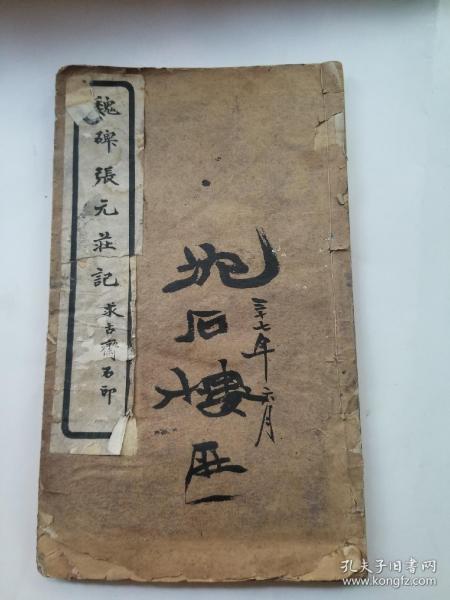 魏碑張元莊記
求古齋石印
三十七年六月
石樓
孔夫子旧书网
www.kongfz.com